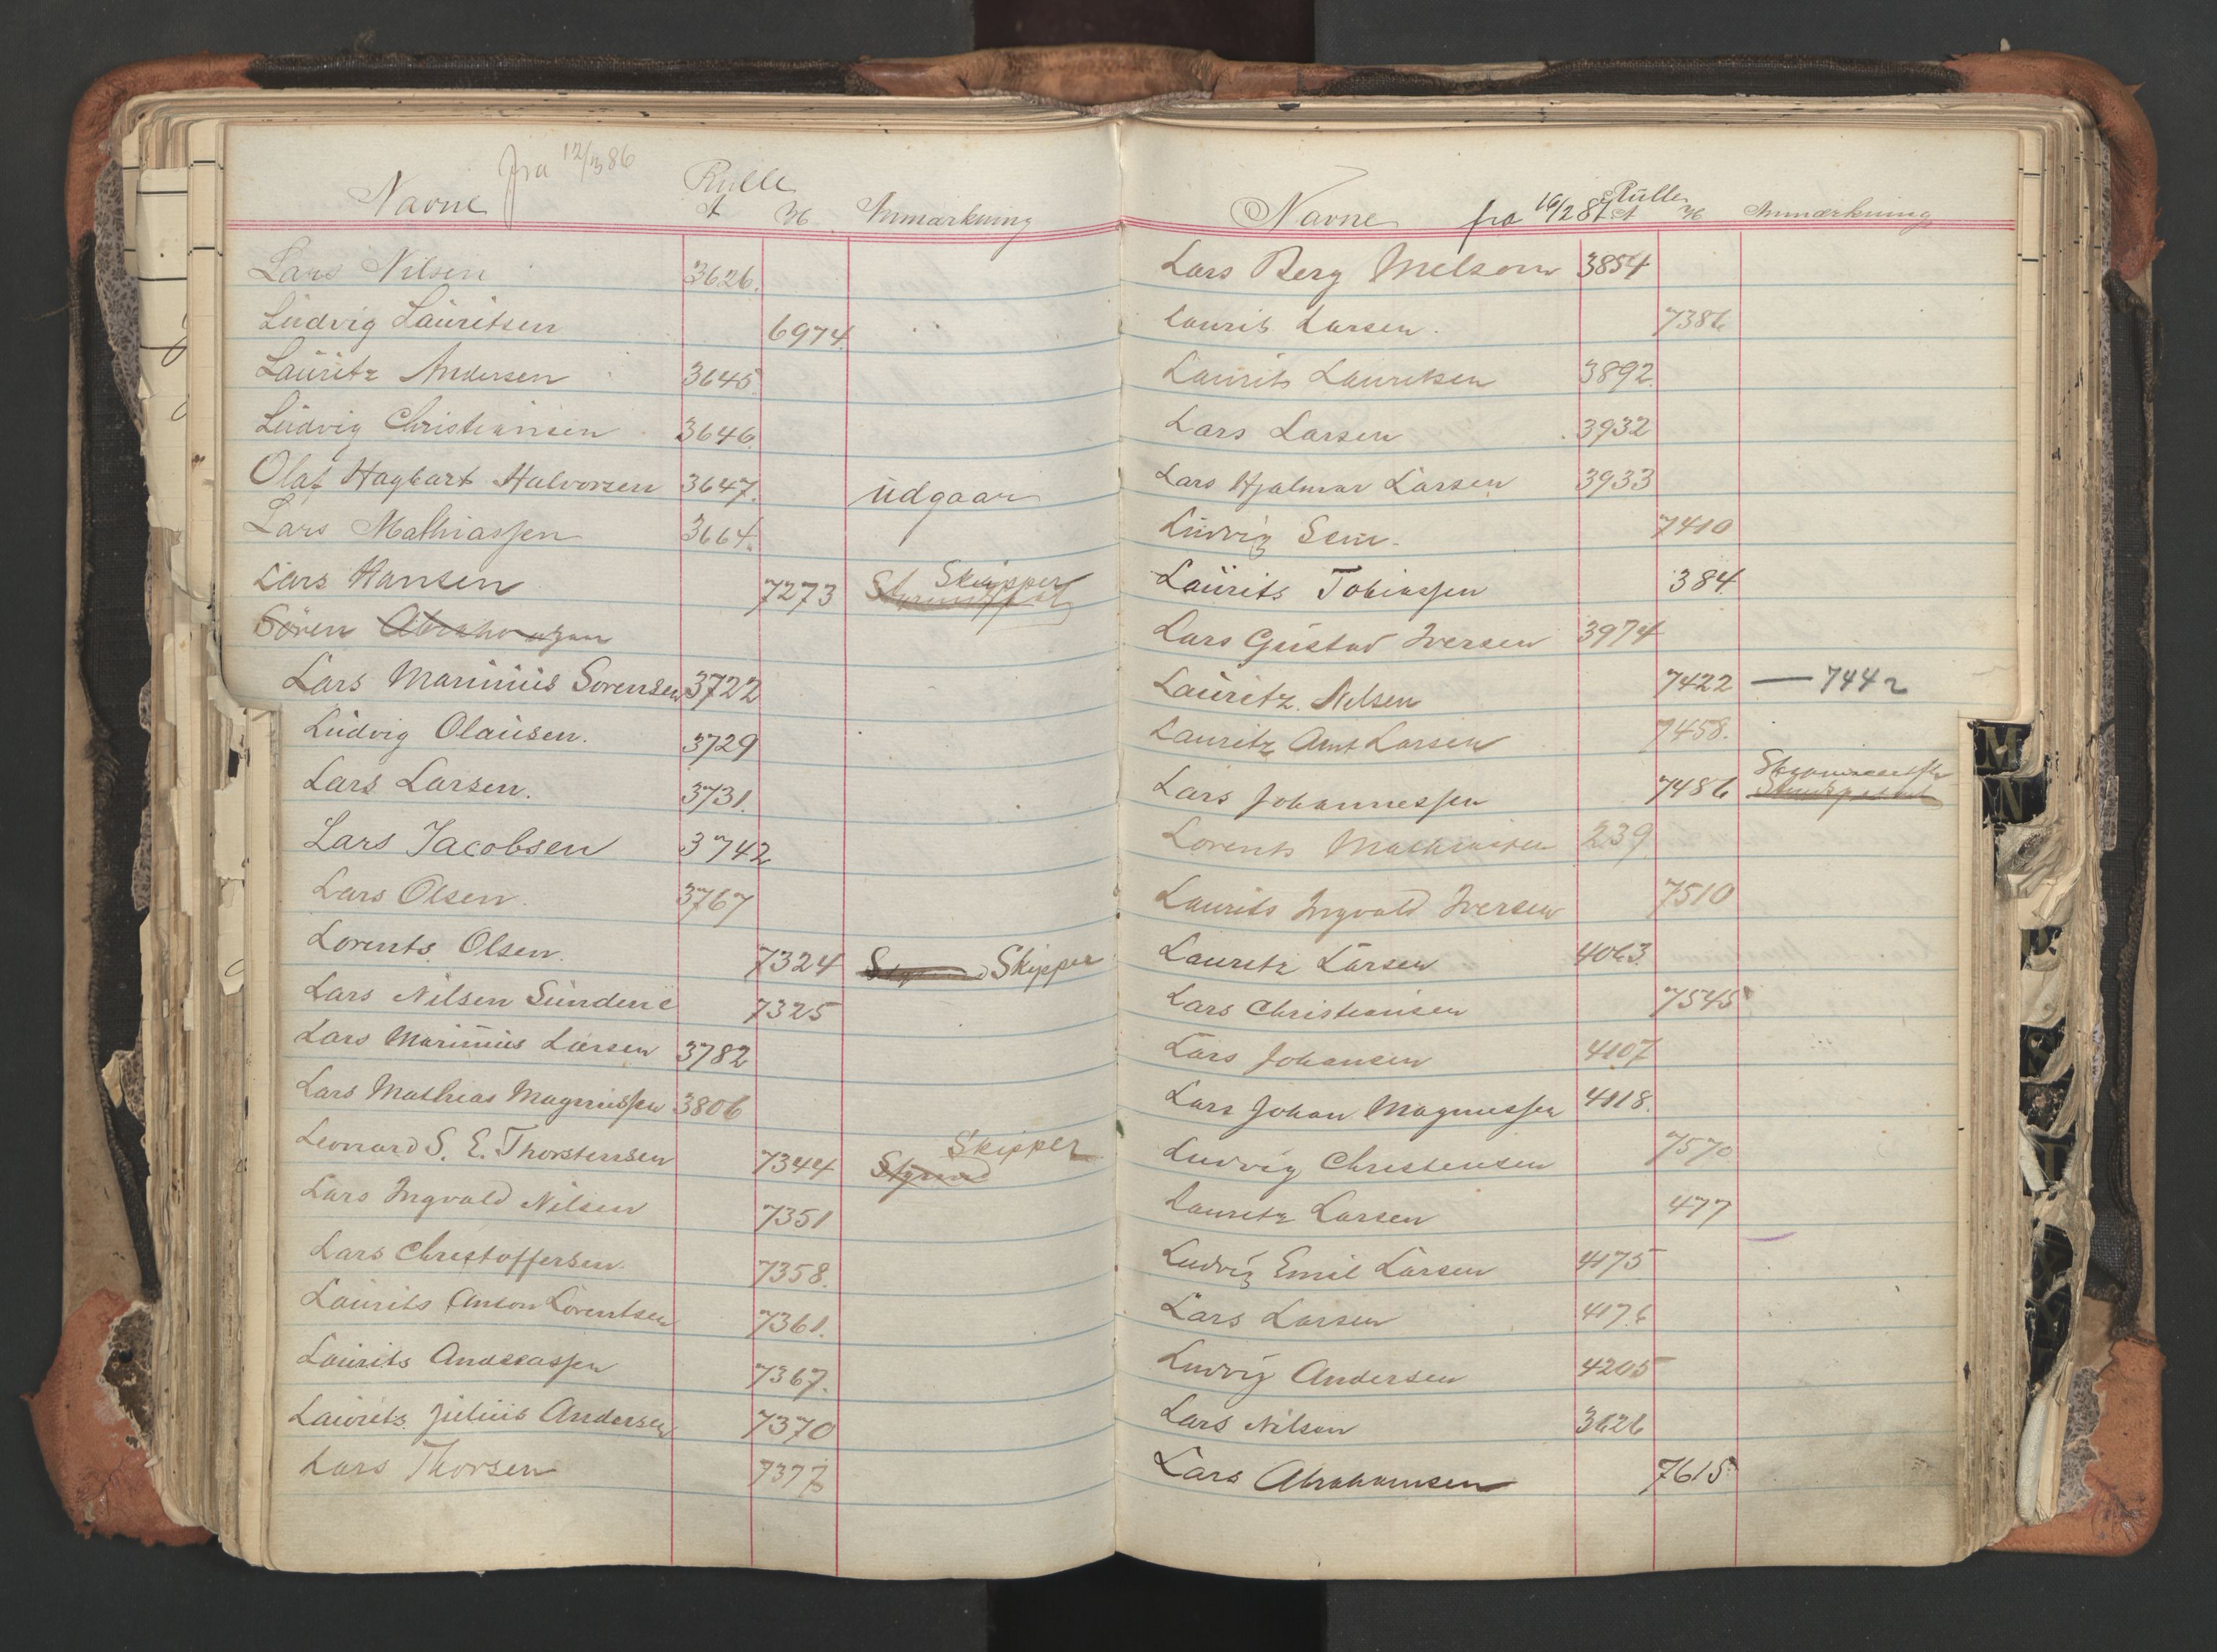 fra 12/3 86
Navne Rulle Anmærkning
A H
Lars Nilsen 3626.
Ludvig Lauritsen 6974
Lauritz Andersen 3645
Ludvig Christiansen 3646
Olaf Hagbart Halvorsen 3647. udgaar
Lars Mathiassen 3664.
Lars Hansen 7273 Skipper
Sören Abrahamsen
Lars Marinius Sorensen 3722
Ludvig Olausen. 3729
Lars Larsen. 3731.
Lars Jacobsen 3742
Lars Olsen. 3767
Lorents Olsen. 7324 Skipper
Lars Nilsen Sundene 7325
Lars Marinius Larsen 3782
Lars Mathias Magnussen 3806
Skipper
Leonard S. E. Thorstensen 7344 Styrmd
Lars Ingvald Nilsen 7351
Lars Christoffersen. 7358.
Laurits Anton Lorentsen 7361.
Laurits Andreassen 7367.
Laurits Julius Andersen 7370
Lars Thorsen 7377
Navne fra 16/2 87 Rulle Anmærkning
A H
Lars Berg Melsom 3854
Laurits Larsen. 7386
Laurits Lauritsen 3892.
Lars Larsen 3932
Lars Hjalmar Larsen 3933
Ludvig Sem. 7410
Laurits Tobiassen 384.
Lars Gustav Iversen 3974
Lauritz Nilsen 7422 — 7442
Lauritz Amt Larsen 7458.
Lars Johannessen 7486
Lorents 239
Laurits Ingvald Iversen 7510
Lauritz Larsen 4063.
Lars Christiansen 7545
Lars Johansen 4107
Lars Johan Magnussen 4118.
Ludvig Christensen 7570
Lauritz Larsen 477
Ludvig Emil Larsen 4175
Lars Larsen 4176
Ludvig Andersen 4205
Lars Nilsen 3626
Lars Abrahamsen 7615